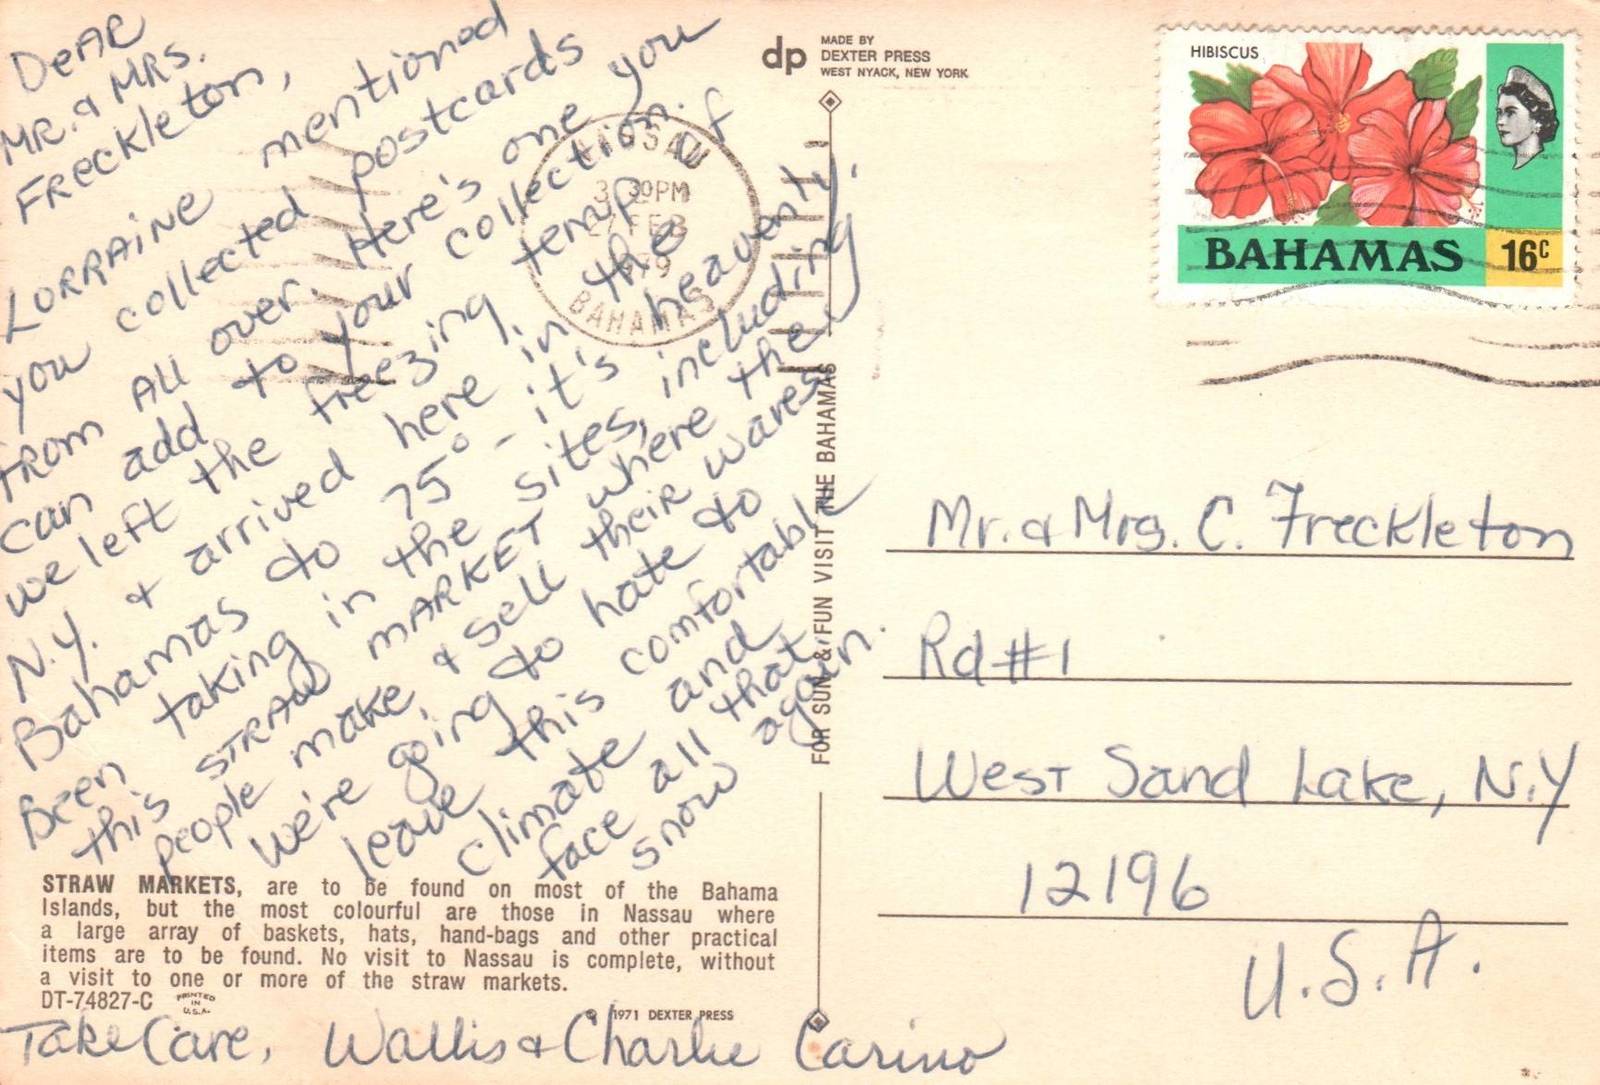 Dear
Mr. & Mrs.
Freckleton,
Lorraine mentioned
you collected postcards
from all over. Here's one you
can add to your collection.
we left the freezing temp of
N.Y. & arrived here in the
Bahamas to 75° - it's heavenly.
Been taking in the sites, including
this STRAW MARKET where the
people make, & sell their wares.
We're going to hate to
leave this comfortable
climate and
face all that
snow again.
STRAW MARKETS, are to be found on most of the Bahama
Islands, but the most colourful are those in Nassau where
a large array of baskets, hats, hand-bags and other practical
items are to be found. No visit to Nassau is complete, without
a visit to one or more of the straw markets.
DT-74827-C
PRINTED
IN
U.S.A.
© 1971 DEXTER PRESS
Take Care, Wallis & Charlie Carino
dp
MADE BY
DEXTER PRESS
WEST NYACK, NEW YORK
FOR SUN & FUN VISIT THE BAHAMAS
NASSAU
30PM
FEB
BAHAMAS
HIBISCUS
BAHAMAS 16c
Mr. & Mrs. C. Freckleton
Rd #1
West Sand Lake, N.Y
12196
U.S.A.